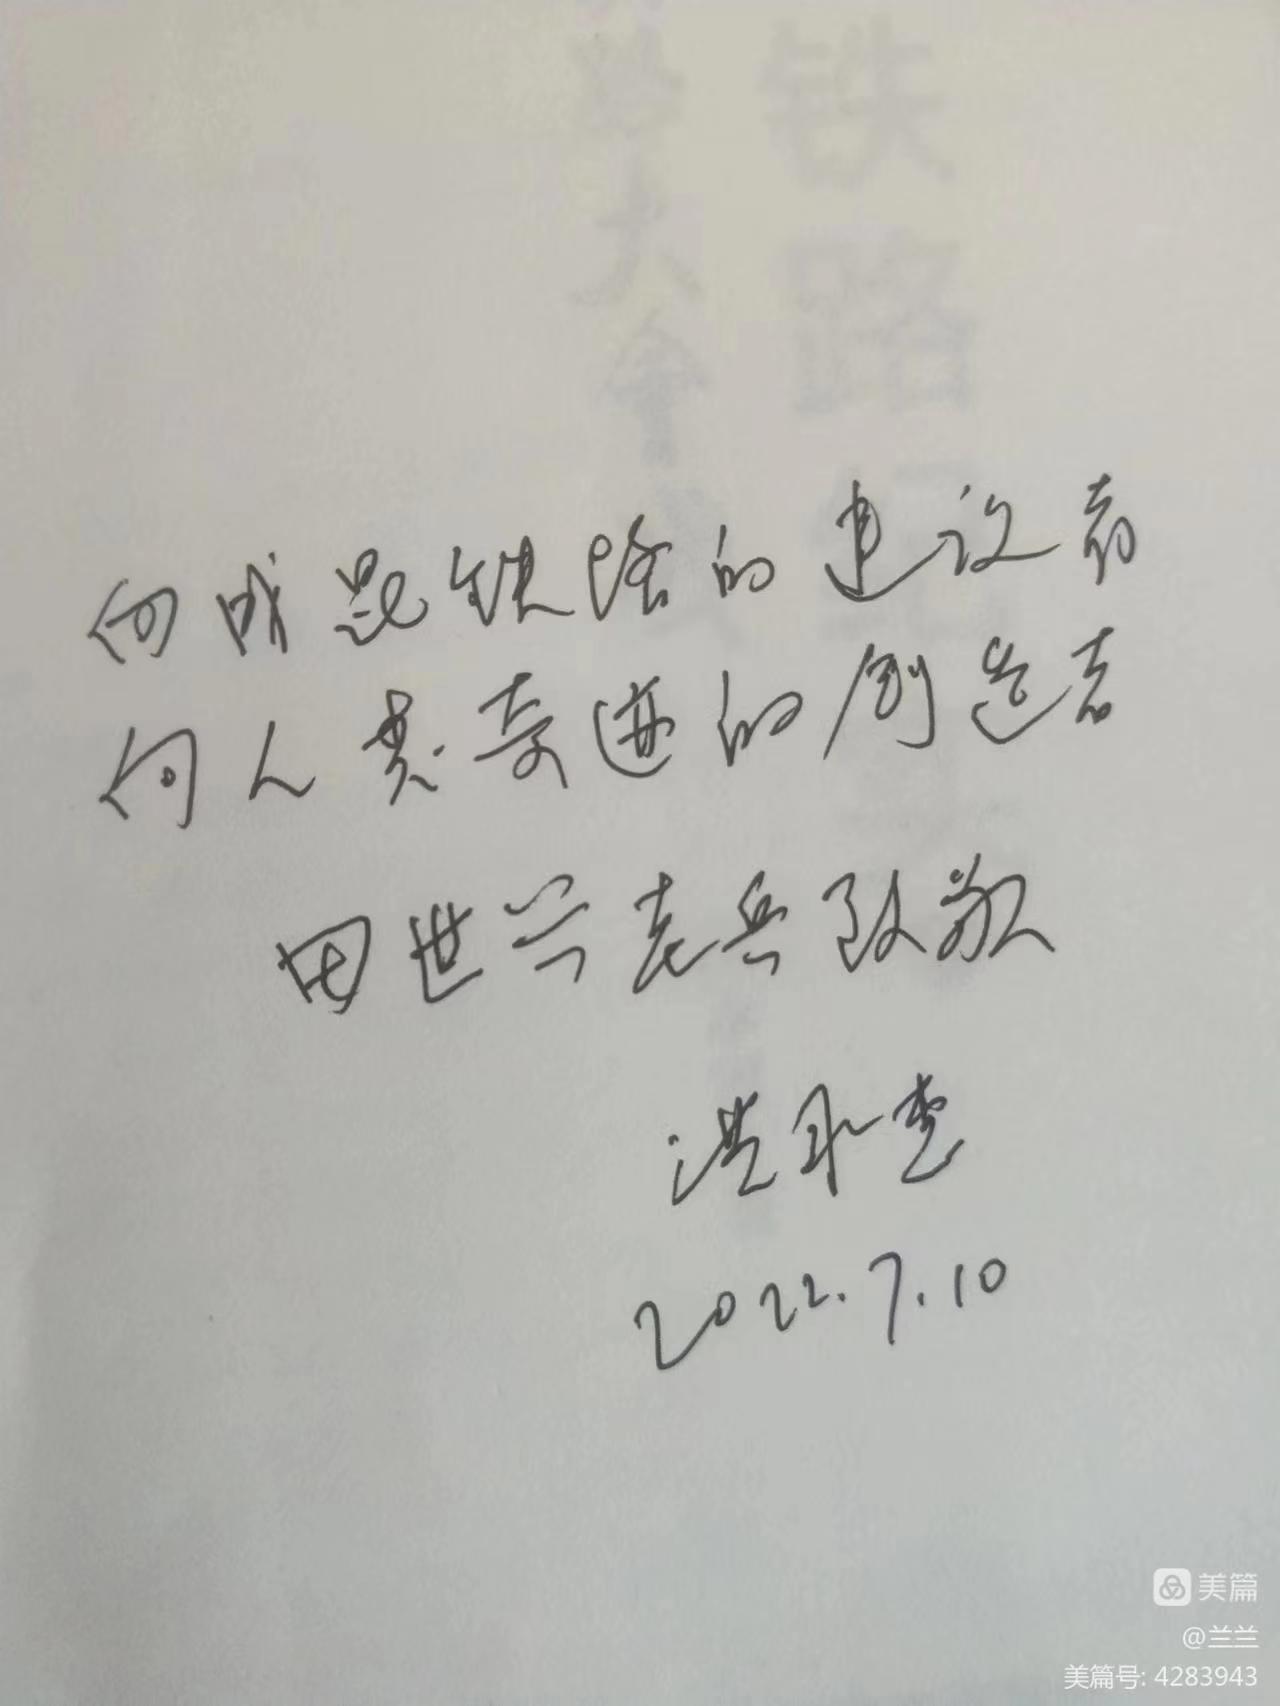 铁路
学大会
向成昆铁路的建设者
向人类奇迹的创造者
田世兴老兵致敬
洪承惠
2022.7.10
美篇
@兰兰
美篇号: 4283943